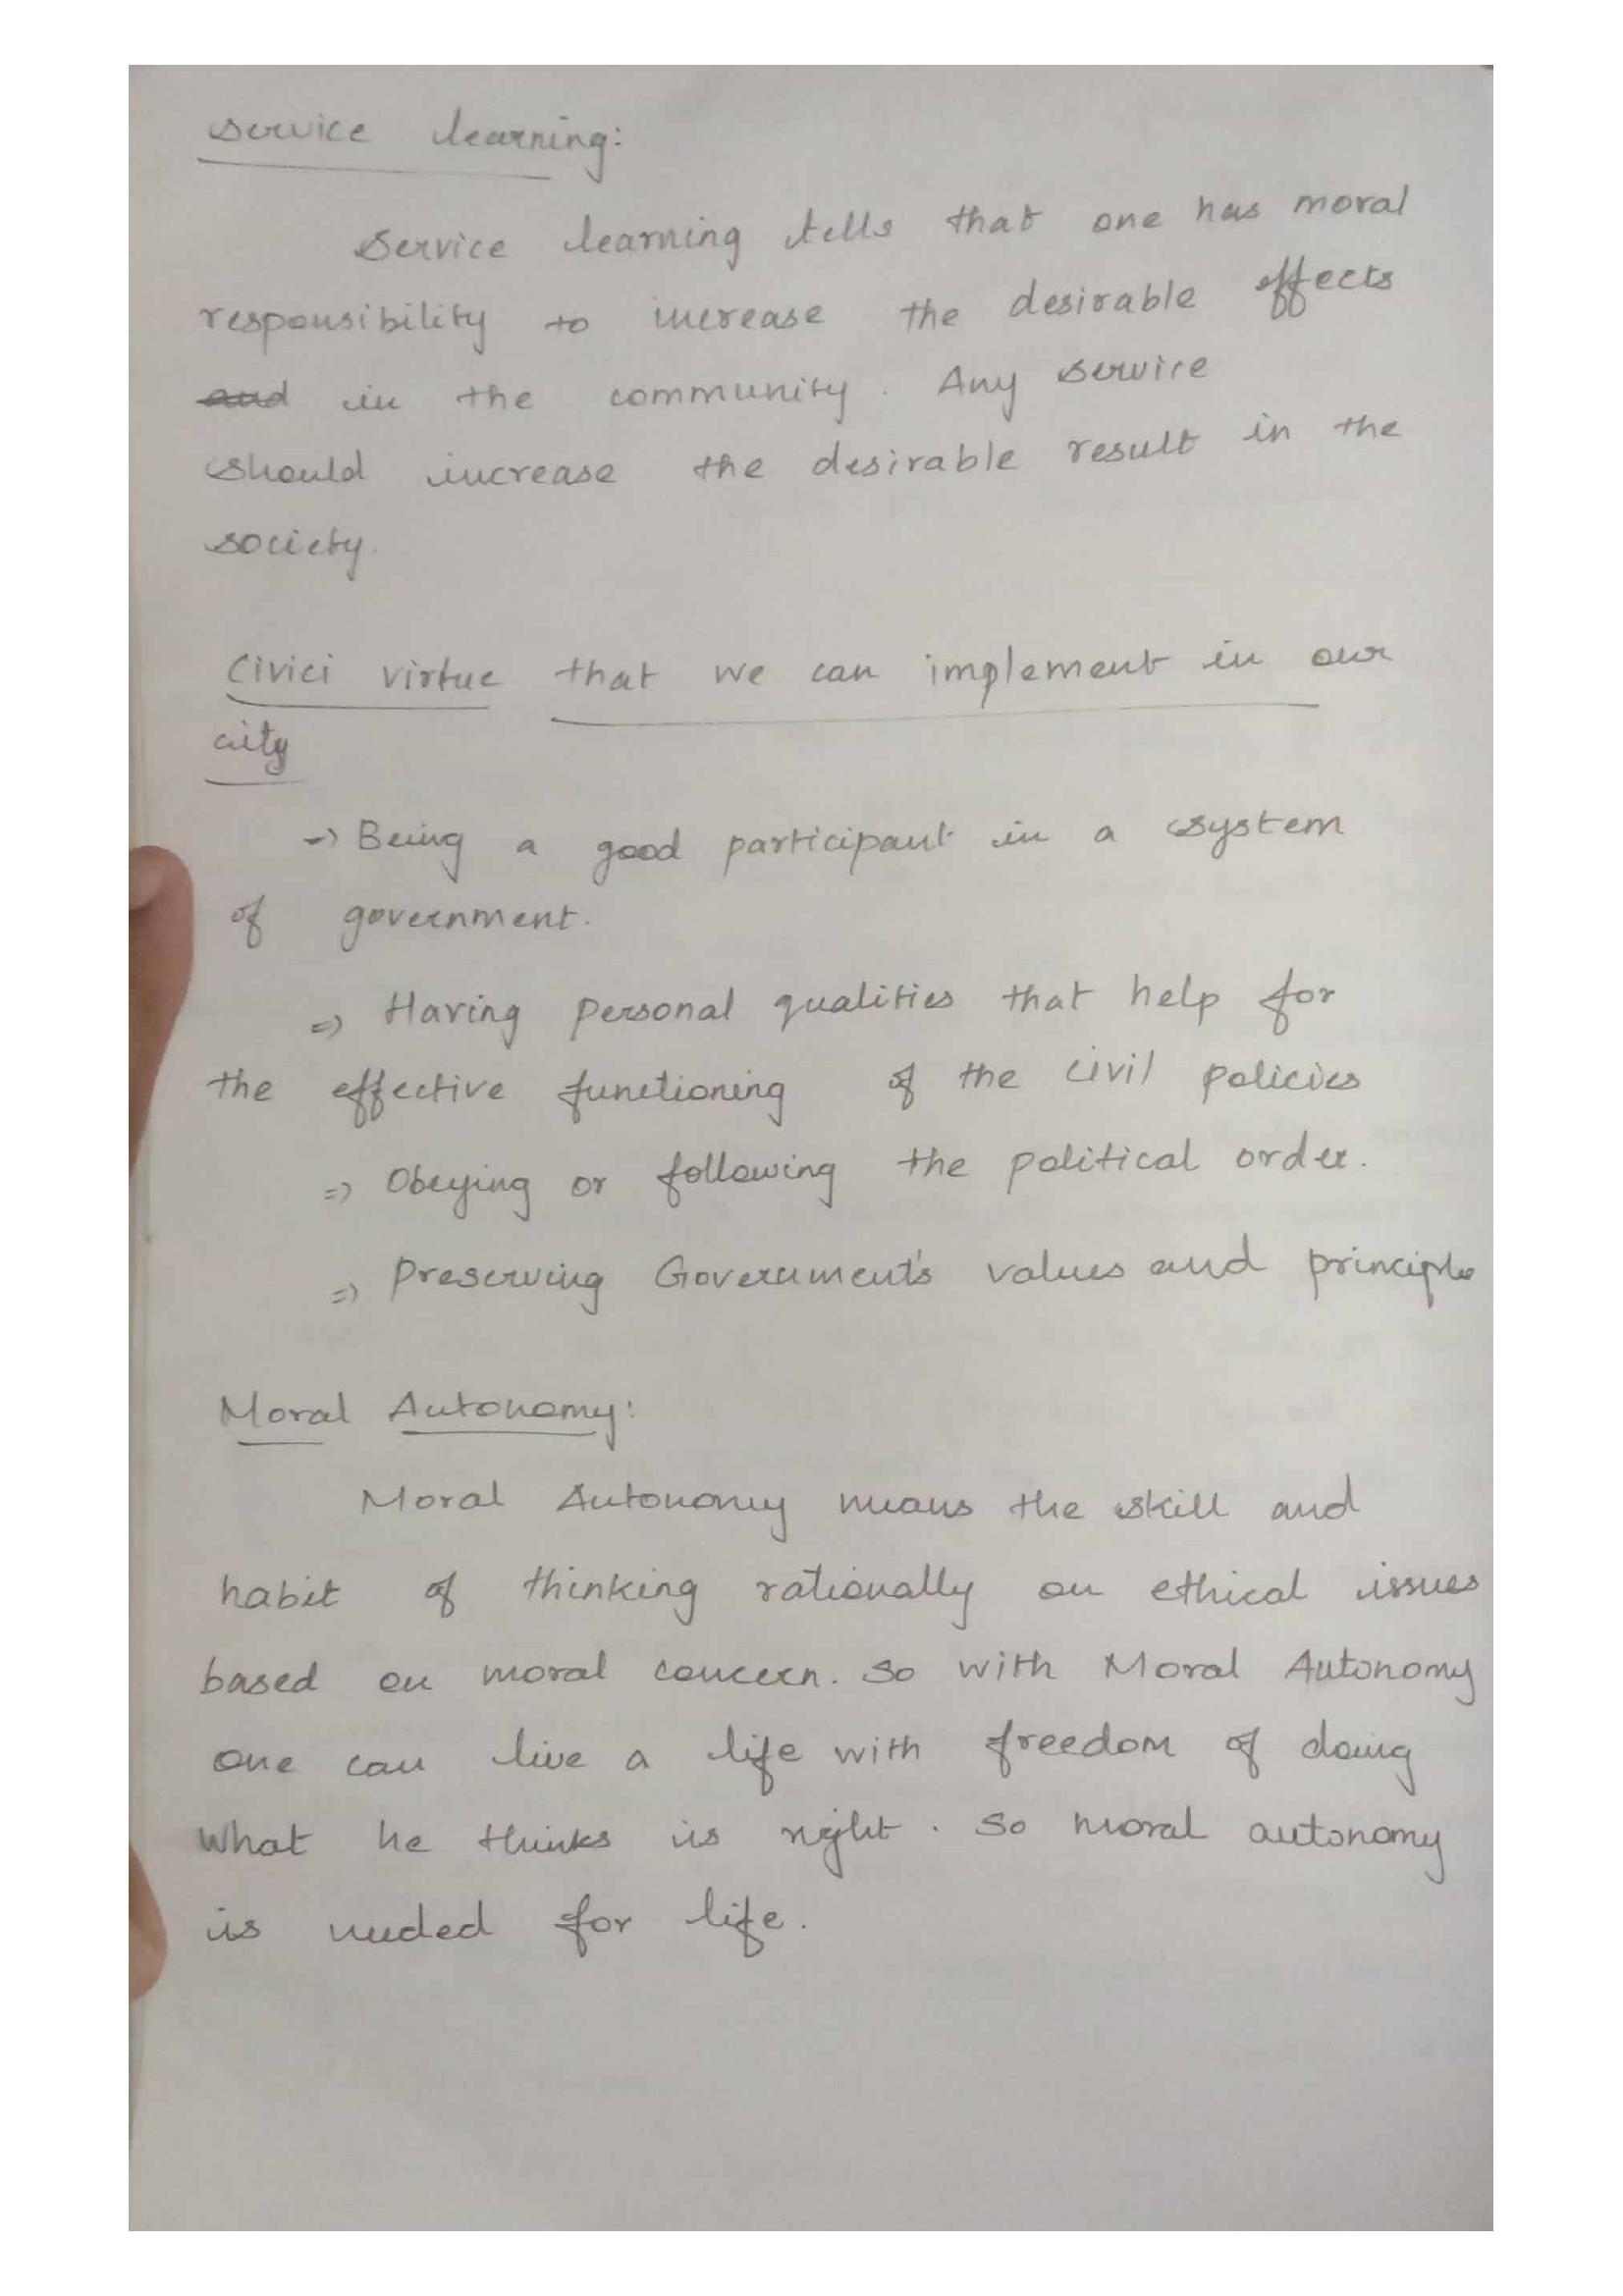 Service learning:
Service learning tells that one has moral
responsibility to increase the desirable effects
and in the community. Any service
should increase the desirable result in the
society.
Civici virtue that we can implement in our
city
→ Being a good participant in a system
of government.
⇒ Having personal qualities that help for
the effective functioning of the civil policies
⇒ Obeying or following the political order.
⇒ Preserving Government's values and principle
Moral Autonomy:
Moral Autonomy means the skill and
habit of thinking rationally on ethical issues
based on moral concern. So with Moral Autonomy
one can live a life with freedom of doing
what he thinks is right. So moral autonomy
is needed for life.